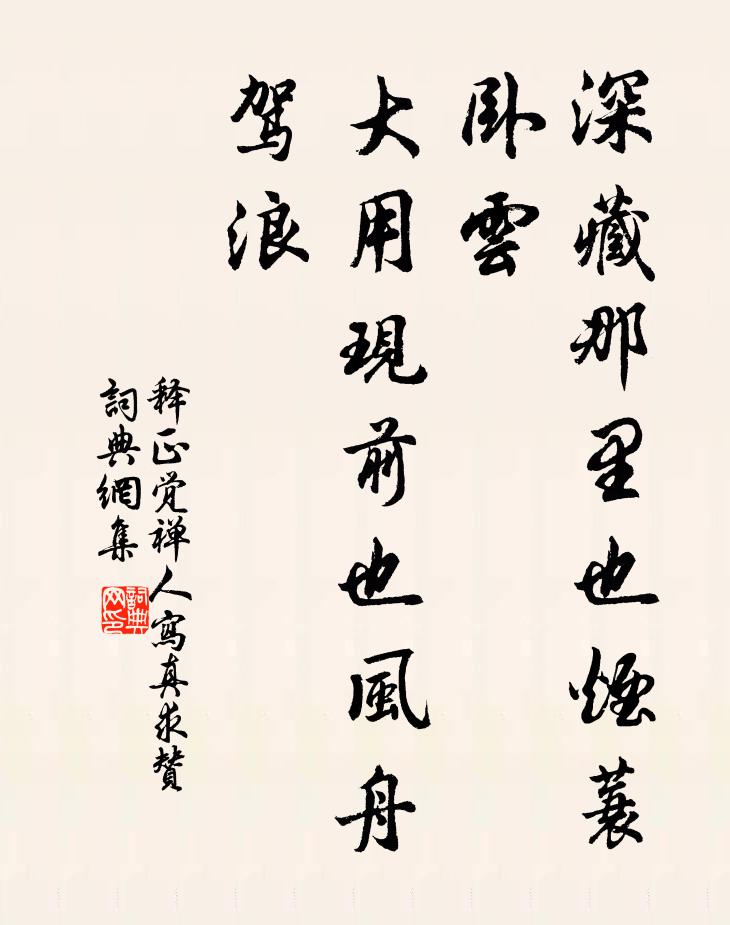 深藏那里也煙蓑
卧雲
大用現前也風舟
驾浪
释正觉禅人寫真求贊
詞典網集
詞典
网印